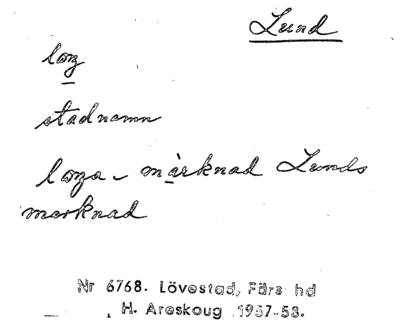 Lund
loŋ
stadnamn
loŋa - märknad Lunds
marknad
Nr 6768. Lövestad, Färs hd
H. Areskoug 1937-53.